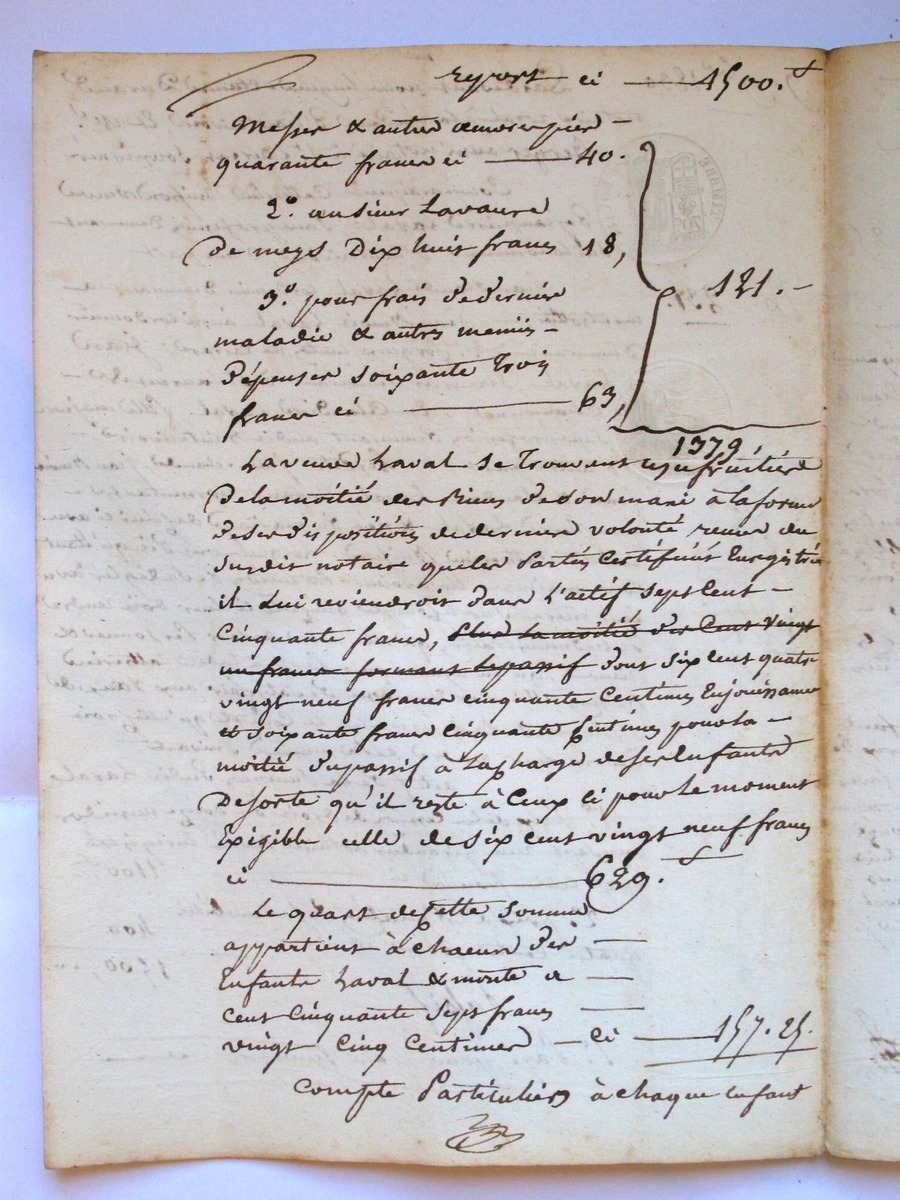 report ci 1500. ₶
messes & autres œuvres pies
quarante francs ci 40.
2.° au sieur Lavaure
de meys Dix huit francs 18,
3.° pour frais de dernière
maladie & autres menües
dépenses soixante trois
francs ci 63,
121.
1379,
La veuve Laval se trouvant usufruitière
De la moitié des Biens de son mari à la forme
de ses dispositions de dernière volonté reçues du
susdit notaire que les Parties Certifient Enregistrées
il lui reviendroit dans l'actif sept Cent
Cinquante francs, plus la moitié des Cent vingt
un francs formant le passif dont six cent quatre
vingt neuf francs cinquante Centimes En jouissance
et soixante francs Cinquante Centimes pour la
moitié du passif à la charge de ses Enfants
De sorte qu'il reste à Ceux ci pour le moment
Exigible celle de six cent vingt neuf francs
ci 629. ₶
Le quart de Cette somme
appartient à chacun des
Enfants Laval & monte a
cent Cinquante sept francs
vingt Cinq Centimes ci 157. 25.
Compte Particulier à chaque enfant